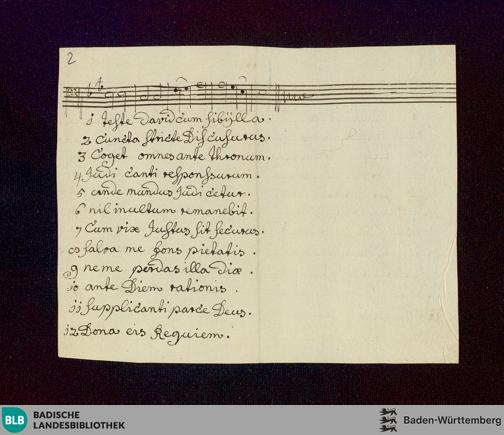 2
1 teste david cum sibÿlla.
2 Cuncta stricte Discusurus.
3 Coget omnes ante thronum.
4 Judicanti responssurum.
5 unde mundus Judicetur.
6 nil inultum remanebit.
7 Cum vix Justus sit securus.
8 salva me fons pietatis.
9 ne me perdas illa Diæ.
10 ante Diem rationis.
11 supplicanti parce Deus.
12 Dona eis Requiem.
BLB BADISCHE
LANDESBIBLIOTHEK
Baden-Württemberg